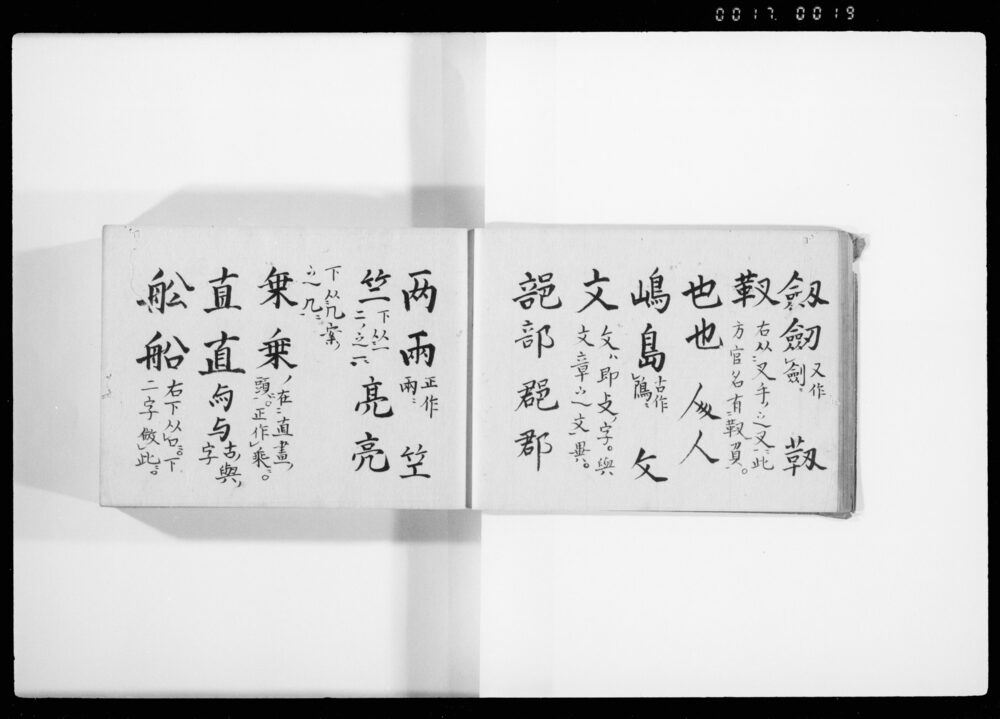 0017 0019
劔劒 又作劍 靭
靫 右从叉手之叉此方官名有靫負。
也也 人人
嶋島 古作隝 攵
文 攵即攴字。與文章之文異。
部 郡郡
両兩 正作兩 竺
竺 下从二二之一 亮亮
下从几案之几
乗乗 ノ在直畫頭。正作乘。
直直 与与 古與字
舩船 右下从口。下二字倣此。